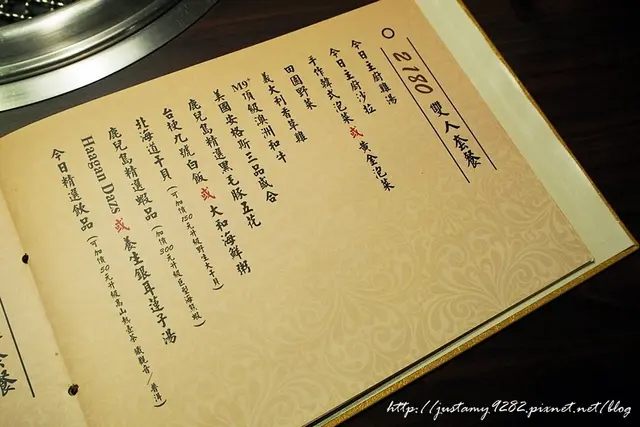 2780 雙人套餐
今日主廚雞湯
今日主廚沙拉
手作韓式泡菜 或 黃金泡菜
田園野菜
義大利香草雞
M9+頂級澳洲和牛
美國安格斯三品盛合
鹿兒島精選黑毛豚五花
台梗九號白飯 或 大和海鮮粥
北海道干貝 (可加價150元升級野生大干貝)
鹿兒島精選蝦品 (加價500元升級巨型海熊蝦)
Haagan Dazs 或 養生銀耳蓮子湯
今日精選飲品 (可加價50元升級高山熱壺茶 鐵觀音/普洱)
套餐
http://justamy9282.pixnet.net/blog